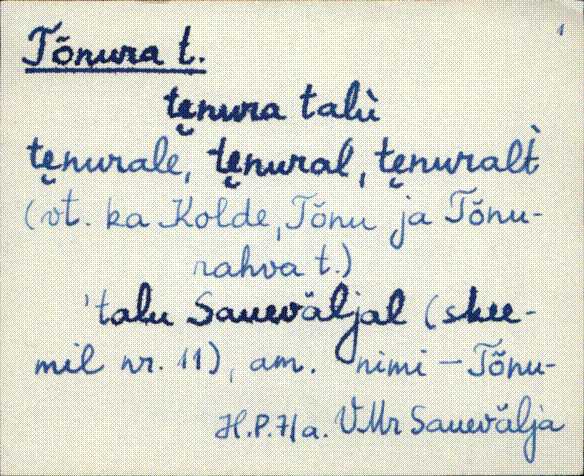 1
Tõnura t.
te̮nura talù
te̮nurale, te̮nural, te̮nuralt̀
(vt. ka Kolde, Tõnu ja Tõnu-
rahva t.)
'talu Saueväljal (skee-
mil nr. 11), am. nimi – Tõnu-
H.P.71a. VMr Sauevälja